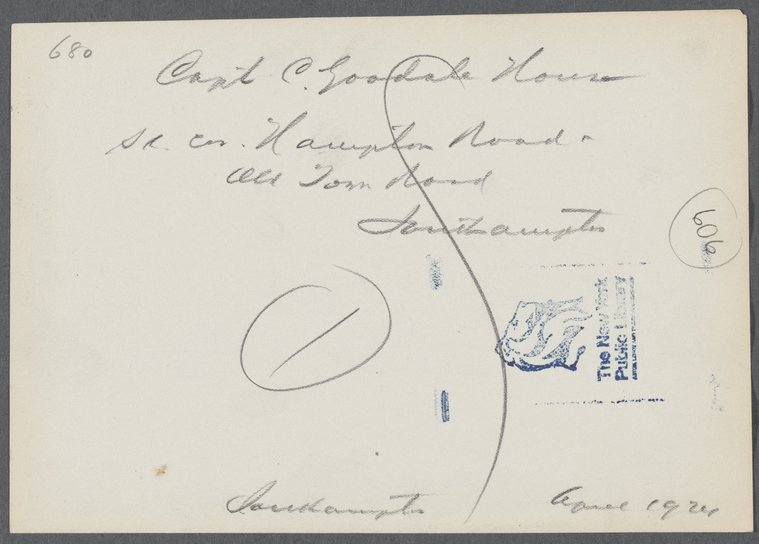 680
Capt C. Goodale House
SE. cor. Hampton Road &
Old Town Road
Southampton
606
The New York
Public Library
1
Southampton April 1924